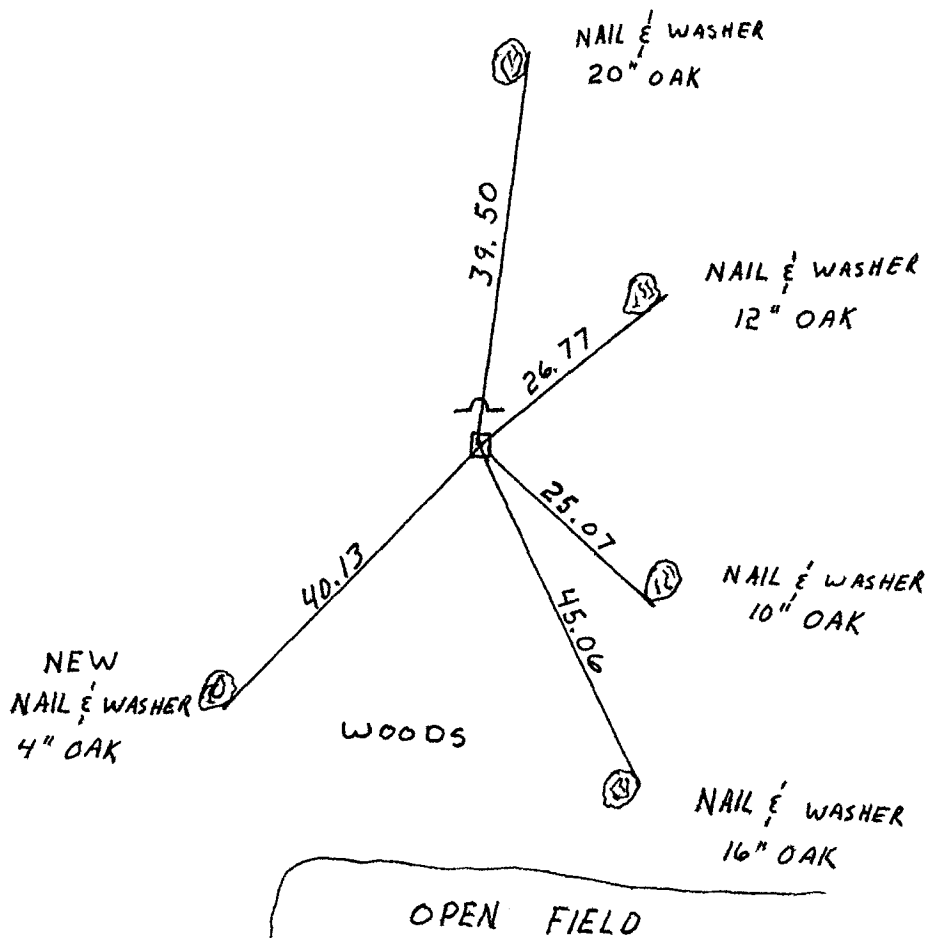 NAIL & WASHER
20" OAK
39.50
NAIL & WASHER
12" OAK
26.77
25.07
NAIL & WASHER
10" OAK
40.13
45.06
NEW
NAIL & WASHER
4" OAK
WOODS
NAIL & WASHER
16" OAK
OPEN FIELD